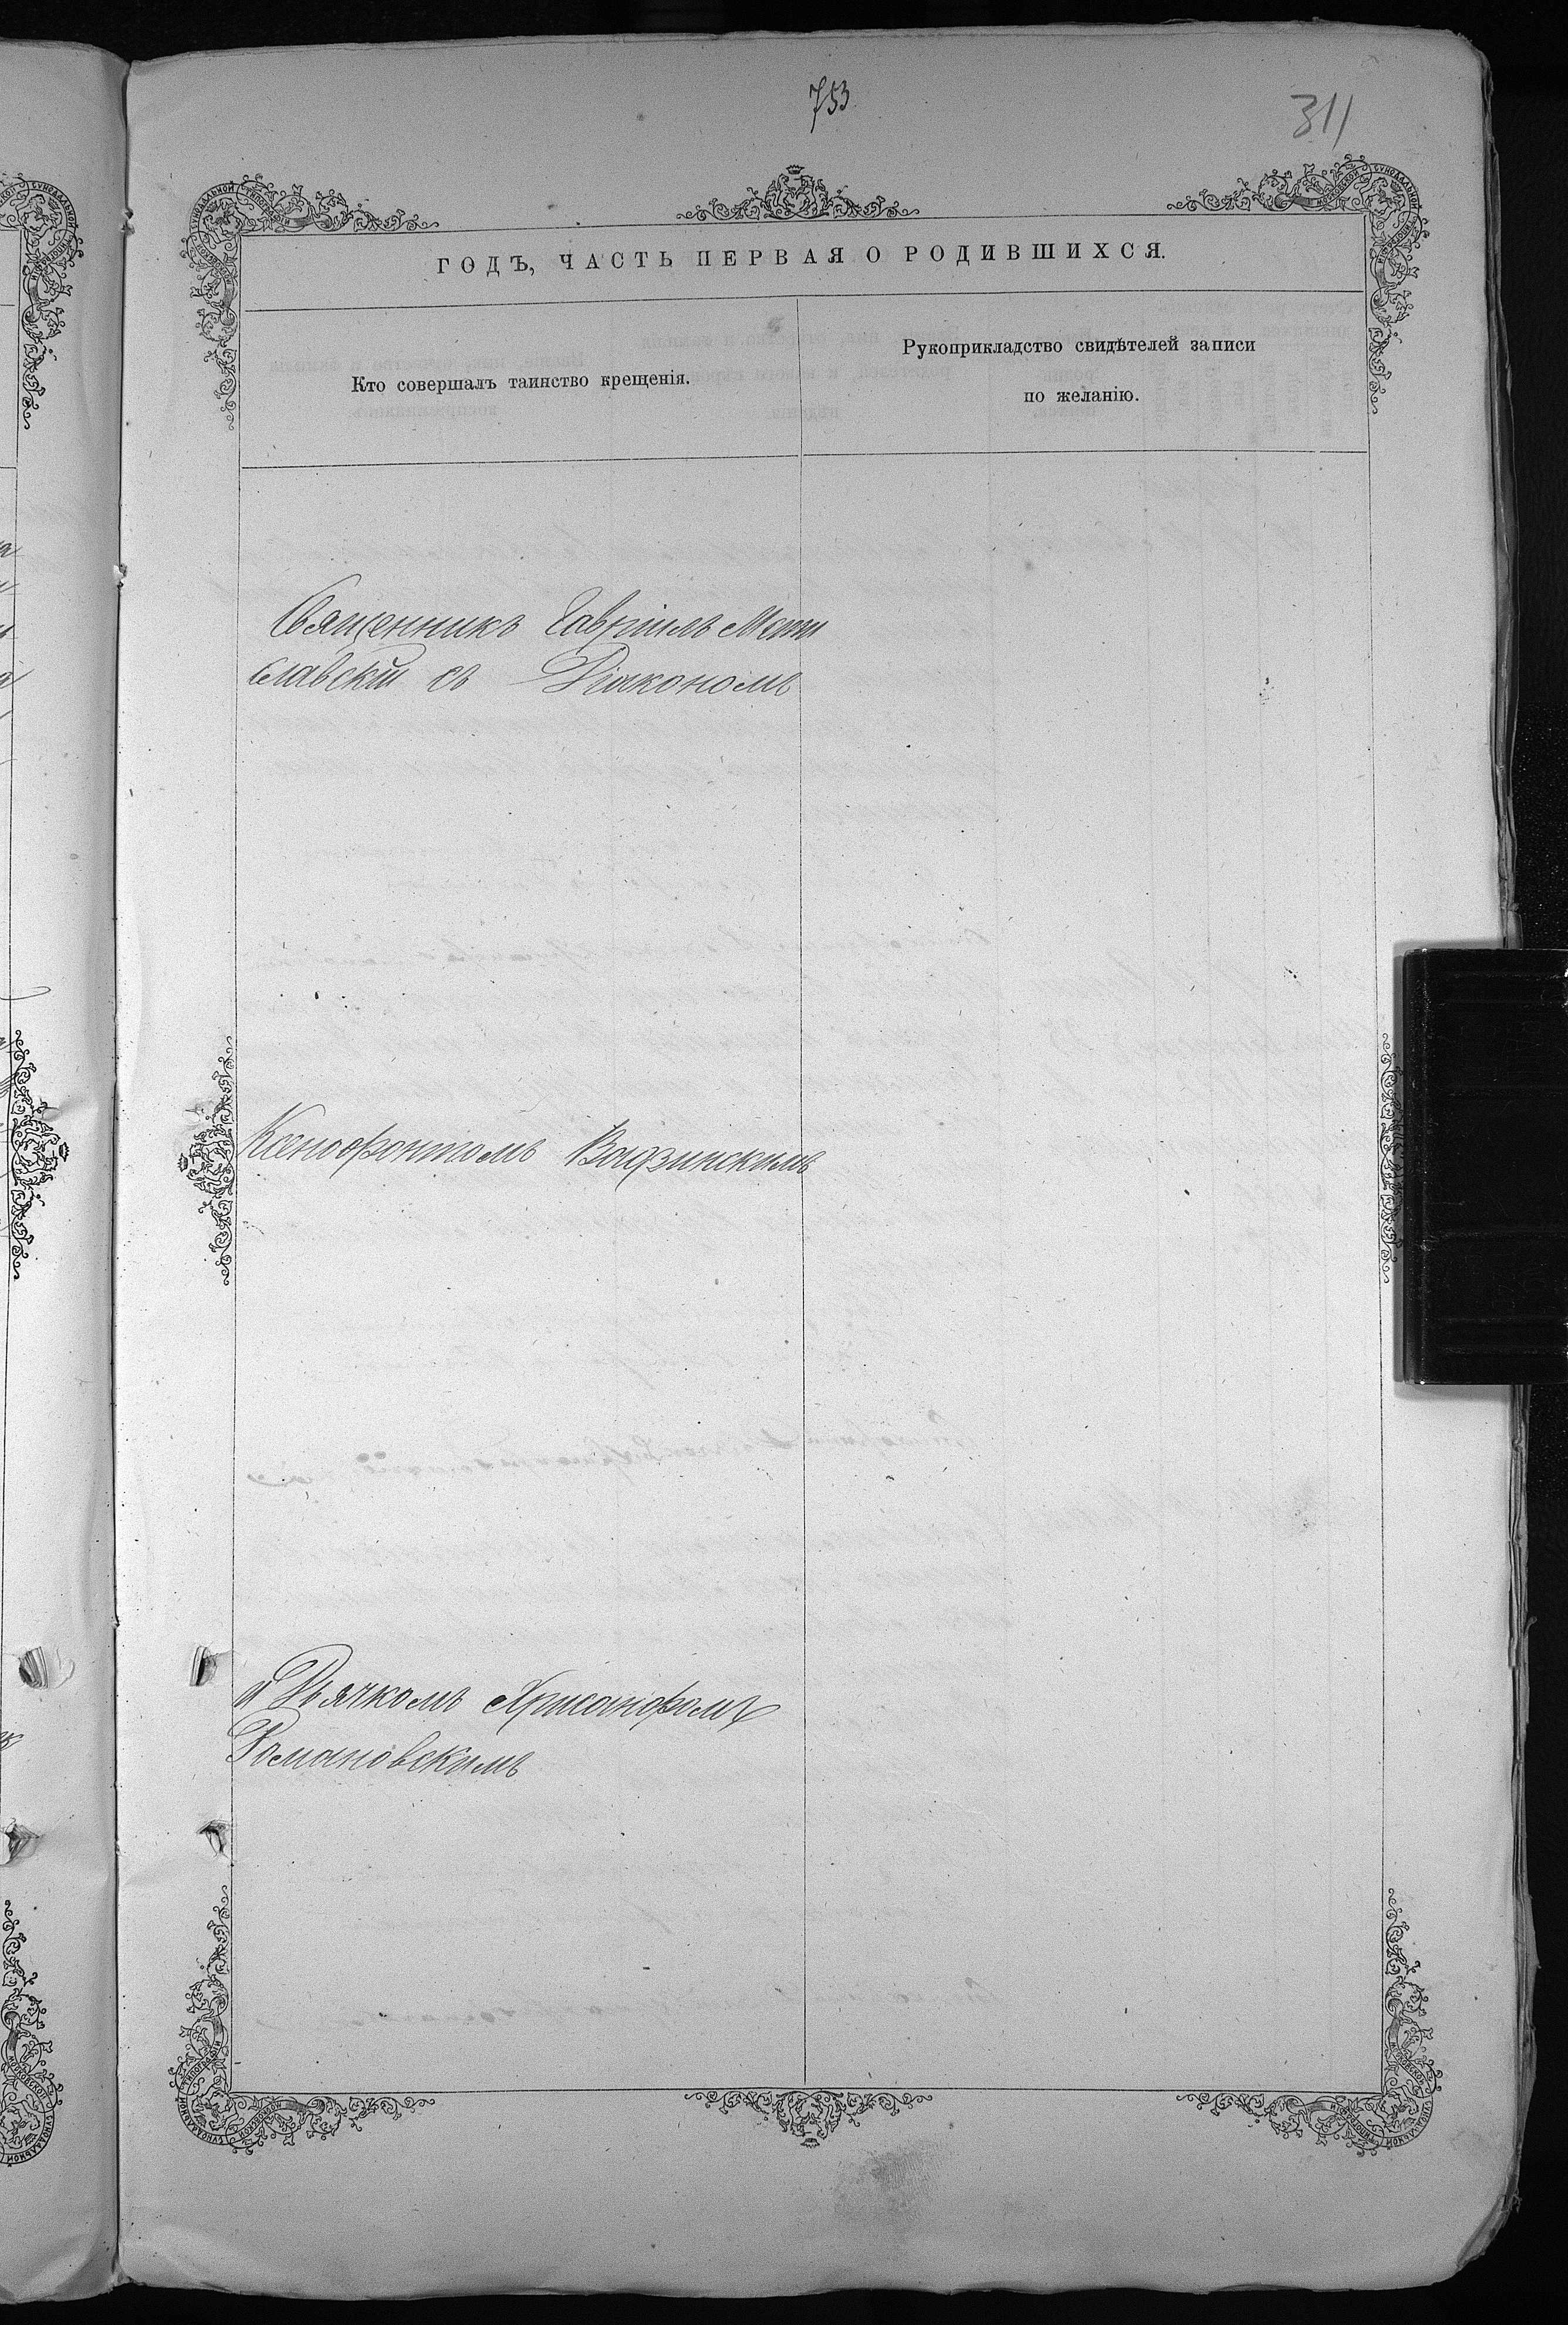 753
311
ГОДЪ, ЧАСТЬ ПЕРВАЯ О РОДИВШИХСЯ.
Кто совершалъ таинство крещенія.
Рукоприкладство свидѣтелей записи
по желанію.
Священникъ Гавріилъ Мсти
славскій съ Діакономъ
Ксенофонтомъ Вадзинскимъ
и Дьячкомъ Хрисанфомъ
Романовскимъ